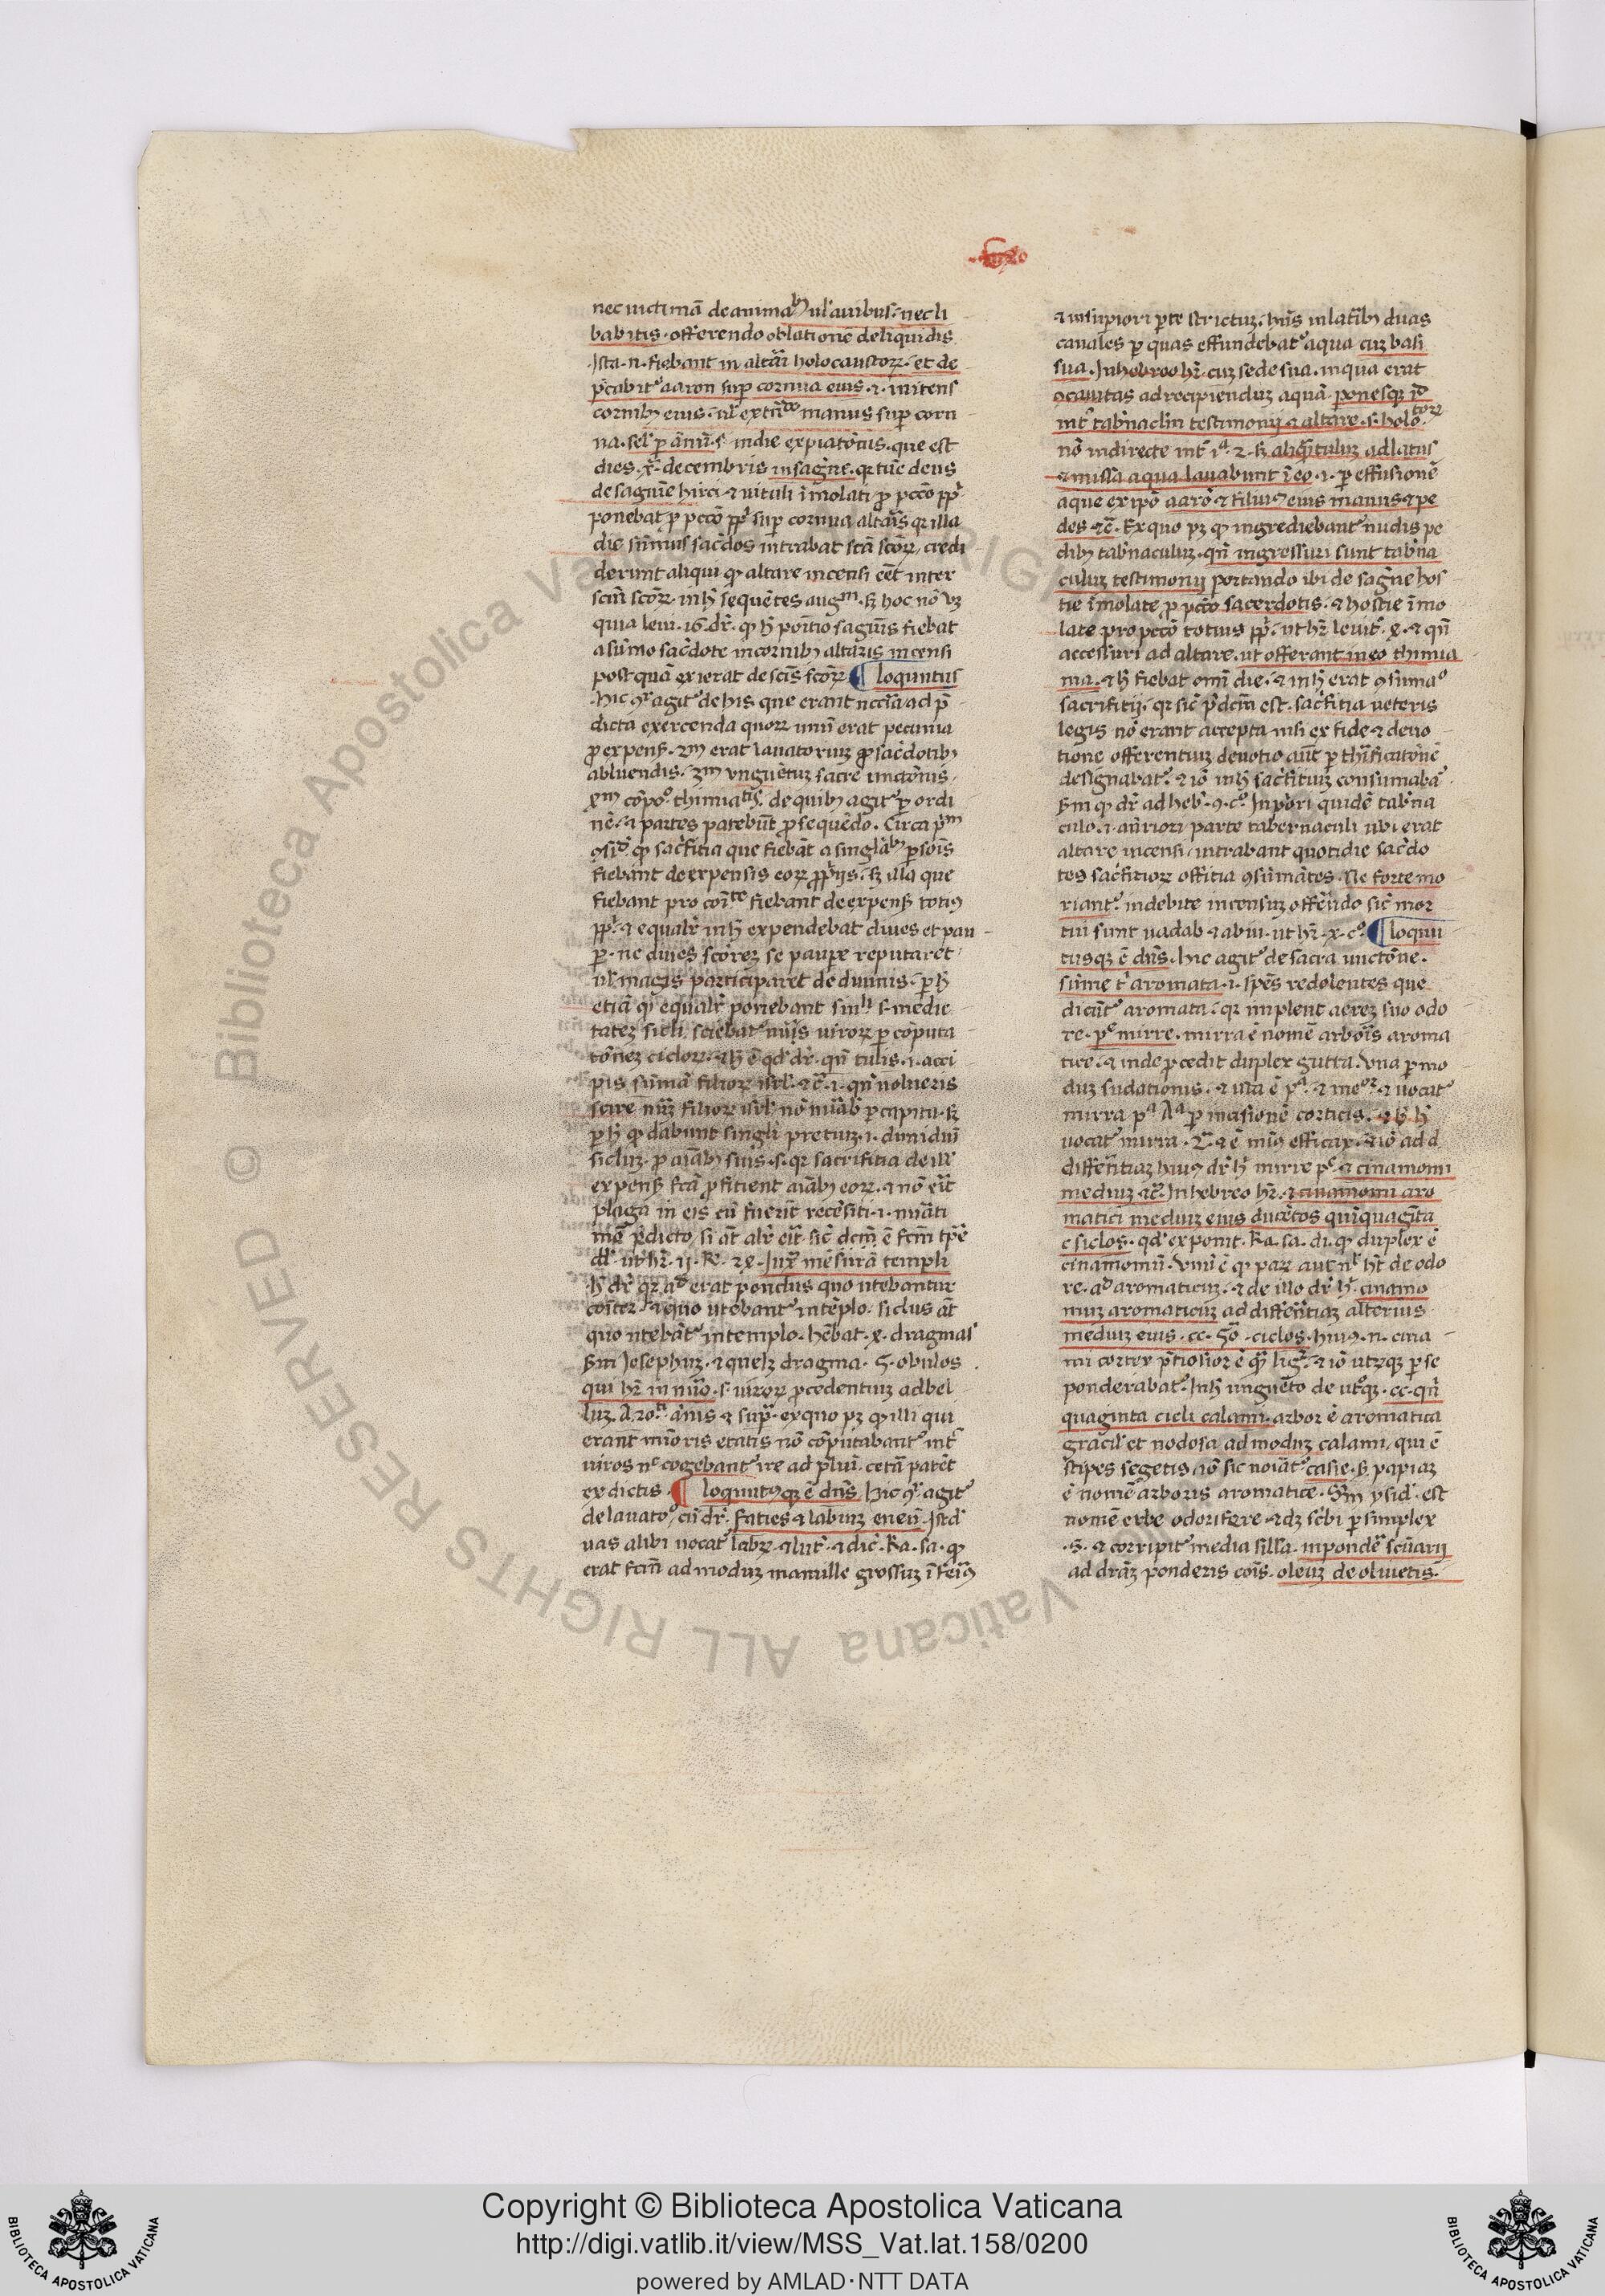 nec uictimā de animabꝫ ul' auibus· nec li
babitis· offerendo oblationē de liquidis
Ista· n· fiebant in altari holocaustoꝝ· et de
p̄cabit᷑ aaron sup cornua eius· i· intens
cornibꝫ eius· ul' manus sup corn
na· sel' p annū· s· in die expiatōnis· que est
dies· x· decembris in sagīe· qꝛ tūc deus
de saguīe hirci ⁊ uituli īmolati ꝓ pccō ppl'
ponebat᷑ ꝓ pccō ppl' sup cornua altaris qꝛ illa
die sūmus sac̄dos intrabat scā scōꝝ, credi
derunt aliqui ꝙ altare incensi eēt inter
scm̄ scōꝝ in hͦ sequētes augᵐ· sꝫ hoc nō ūꝫ
quia leui· 16· dr̄· ꝙ hͦ positio saguīs fiebat
a sūmo sac̄dote in cornibꝫ altaris incensi
postquā exierat de scīs scōꝝ ¶ loquntus
hic ꝯr̄ agit᷑ de his que erant nccīa ad p̄
dicta exercenda quoꝝ unū erat pecunia
ꝓ expens̄· 2ᵐ erat lauatorium ꝓ sac̄dotibꝫ
abluendis· 3ᵐ unguētuꝫ sacre unctōnis·
4ᵐ cōpo° thimiatis· de quibꝫ agit᷑ ꝑ ordi
nē· ⁊ partes patebūt ꝓsequēdo· Circa p̄ᵐ
ꝯsid᷑· ꝙ sac̄fitia que fiebāt a singlāribꝫ ꝑsoīs
fiebant de expensis eoꝝ ꝓprijs· sꝫ illa que
fiebant pro cōi̅te fiebant de expens̄ totiꝰ
ppl'· ⁊ equalr̄ in hͦ expendebat diues et pau
ꝑ· ne diues sc̄oreꝫ se pauꝑe reputaret
ul' magis participaret de diuinis· ꝑ hͦ
etiā ꝙ equalr̄ ponebant s· medie
tateꝫ sicli· sciebat᷑ nūs uiroꝝ ꝑ cōputa
tōneꝫ cicloꝝ· ⁊ hͦ ē qd̄ dr̄· qn̄ tulis· i· acci
pis sūmā filioꝝ isrl'· ⁊c̄· i· qn̄ uolueris
scire nūꝫ filioꝝ isrl' nō nūabr̄ ꝑ capita· sꝫ
ꝑ hͦ ꝙ dabunt singli pretiuꝫ· i· dimidiū
sicluꝫ· ꝓ aīabꝫ suis· s· qꝛ sacrifitia de ill'
expens̄ fcā ꝓficient aīabꝫ eoꝝ· ⁊ nō erit
plaga in eis cū fuerit recēsiti· i· nūati
mō p̄dicto, si āt alr̄ erit· sic̄ dcm̄ ē fcm̄ tpe
dd̄· ut hr̄· ij· R̄· 24· Juxᵃ mēsurā templi
hͦ dr̄ qꝛ aᵈ erat pondus quo utebantur
coīter· ⁊ quo utebant᷑ in tēplo· siclus āt
quo utebāt᷑ in templo· hēbat· x· dragmas
s̄m Josephuꝫ· ⁊ quelꝫ dragma· 5· obulos
qui hr̄ in nūo· s· uiroꝝ ꝓcedentiuꝫ ad bel
luꝫ· A· 20· ānis ⁊ supᵃ· ex quo pꝫ ꝙ illi qui
erant mīoris etatis nō cōputabant᷑ int᷑
uiros nͨ cogebant᷑ ire ad p̄liū· cetā patēt
ex dictis· ¶ loqutusqꝫ ē dn̄s hic ꝯr̄ agit᷑
de lauato°, cū dr̄· faties ⁊ labiuꝫ eneū· Istd̄
uas alibi uocat᷑ labꝝ ⁊ lut᷑· ⁊ dic̄· Ra· sa· ꝙ
erat fcm̄ ad moduꝫ manille grossuꝫ īferiꝰ
⁊ in supiori ꝑte strictuꝫ· hn̄s in latībꝫ duas
canales ꝑ quas effundebat᷑ aqua cuꝫ basi
sua· In hebreo hr̄· cuꝫ sede sua· in qua erat
ocauitas ad recipienduꝫ aquā· ponesqꝫ id̄
int᷑ tab̄naclm̄ testimonij ⁊ altare· s· holotoꝝ
nō in directe int᷑ iᵃ· 2· sꝫ aliqñtuluꝫ ad latus
⁊ missa aqua lauabunt ī eo· i· ꝑ effusionē
aque ex ipo aarō ⁊ filii eius manus ⁊ pe
des ⁊c̄· Ex quo pꝫ ꝙ ingrediebant᷑ nudis pe
dibꝫ tab̄naculuꝫ· qn̄ ingressuri sunt tab̄na
culuꝫ testimonij portando ibi de sagīne hos
tie īmolate ꝓ pccō sacerdotis· ⁊ hostie īmo
late pro pccō totius ppl'· ut hr̄ leuit᷑· 4· ⁊ qn̄
accessuri ad altare· ut offerant in eo thimia
ma· ⁊ hͦ fiebat omī die· ⁊ in hͦ erat ꝯsumaᵒ
sacrifitij· qꝛ sic̄ p̄dcm̄ est· sac̄fitia ueteris
legis nō erant accepta nisi ex fide ⁊ deuo
tione offerentiuꝫ deuotio aut̄ ꝑ thīficatōnē
designabat᷑· ⁊ iō in hͦ sac̄fitiuꝫ consumaba᷑
s̄m ꝙ dr̄ ad heb̄· 9· c°· In p̄ori quidē tab̄na
culo· i· an̄riori parte tabernaculi ubi erat
altare incensi, intrabant quotidie sac̄do
tes sac̄fitioꝝ offitia ꝯsūmātes· Ne forte mo
riant᷑· indebite incensuꝫ offēndo sic̄ mor
tui sunt nadab ⁊ abiu· ut hr̄· x· c°· ¶ loqui
tusqꝫ ē dn̄s· hic agit᷑ de sacra unctōne·
sume t᷑ aromata· i· sp̄es redolentes que
dicūt᷑ aromata· qꝛ implent aereꝫ suo odo
re· pͤ mirre· mirra ē nomē arboris aroma
tice· ⁊ inde ꝓcedit duplex gutta· Una ꝑ mo
duꝫ sudationis· ⁊ illa ē pᵃ· ⁊ me°ʳ· ⁊ uocat᷑
mirra pᵃ Aᵃ ꝑ incisionē corticis· ⁊
uocat᷑ mirra· ⁊ ē minꝰ efficax· ⁊ iō ad d
differ̄ntiaꝫ huiꝰ dr̄ hͦ mirre pͤ· ⁊ cinamomi
mediuꝫ ⁊c̄· In hebreo hr̄· ⁊ cinamomi aro
matici mediuꝫ eius ducētos quīquagīta
c siclos· qd̄ exponit· Ra· sa· di· ꝙ duplex ē
cinamomū· Unū ē ꝙ paꝝ aut nͥ hr̄ de odo
re· aᵈ aromaticuꝫ· ⁊ de illo dr̄ hͦ· cinamo
muꝫ aromaticuꝫ ad differ̄ntiaꝫ alterius·
mediuꝫ eius· cc· 50· ciclos· huiꝰ· n· cina
mi cortex p̄tiosior ē qᵃ̄ lig᷑· ⁊ iō utꝝqꝫ ꝑ se
ponderabat᷑· In hͦ unguēto de utᵒqꝫ· cc· qn̄
quaginta cicli calami· arbor ē aromatica
gracil' et nodosa ad moduꝫ calami, qui ē
stipes segetis, iō sic noīat᷑ casie· s̄m papiaꝫ
ē nomē arboris aromatice· s̄m ysid᷑· est
nomē erbe odorifere· ⁊ dꝫ sc̄bi ꝑ simplex
·s· ⁊ corripit᷑ media silla· in ponde᷑ sc̄uarij
ad drāꝫ ponderis cōis· oleuꝫ de oliuetis·
Copyright © Biblioteca Apostolica Vaticana
http://digi.vatlib.it/view/MSS_Vat.lat.158/0200
powered by AMLAD·NTT DATA
BIBLIOTECA APOSTOLICA VATICANA
BIBLIOTECA APOSTOLICA VATICANA
© Biblioteca Apostolica Vaticana ALL RIGHTS RESERVED